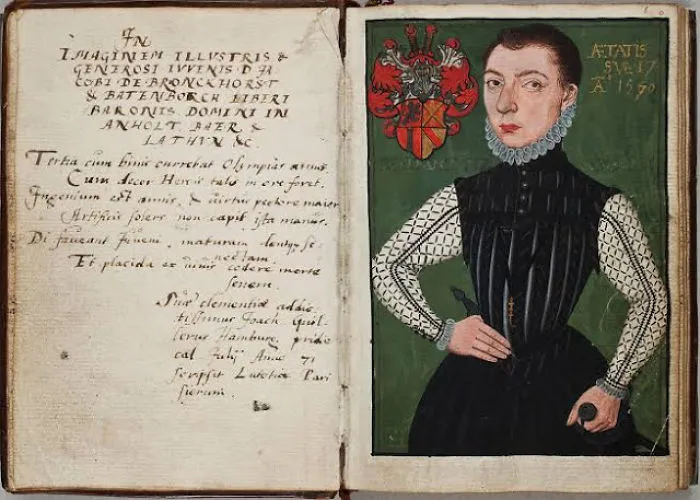 IN
IMAGINEM ILLVSTRIS &
GENEROSI IVVENIS D IA
COBI DE BRONCKHORST
& BATENBORCH LIBERI
BARONIS DOMINI IN
ANHOLT BAER &
LATHVN &c.
Tertia cum binis currebat Olympias annis,
Cum decor Herois talis in ore foret.
Ingenium est annis, & virtus pectore maior
Artificis solers non capit ista manus.
Di faveant Iuveni, maturam denique se-
nectam.
Et placida ex vivis cedere morte
senem.
Suae clementiae addic
tissimus Joach.
Hamburg. pridie
cal. Julij Anno 71
scripsit Lutetiae Pari
siorum.
ÆTATIS
SVE 17
Aº 1570